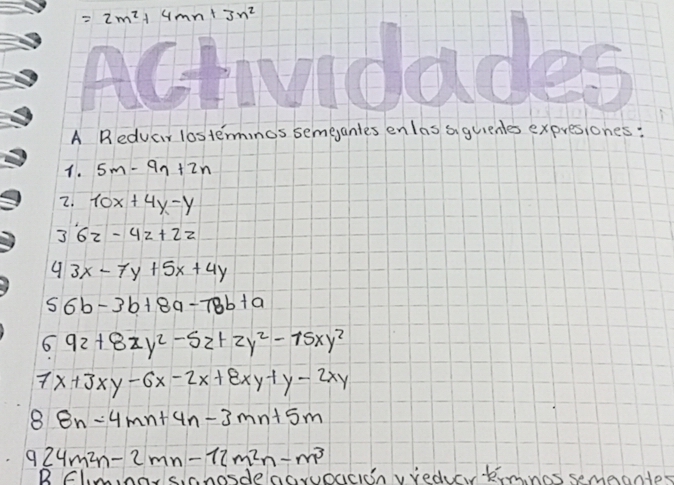 = 2m² + 4mn + 3n²
Actividades
A Reducir los términos semejantes en las siguientes expresiones:
1. 5m - 9n + 2n
2. 10x + 4y - y
3 6z - 4z + 2z
4 3x - 7y + 5x + 4y
5 6b - 3b + 8a - 18b + a
6. 9z + 8zy² - 5z + zy² - 15xy²
7x + 3xy - 6x - 2x + 8xy + y - 2xy
8 8n - 4mn + 4n - 3mn + 5m
9 24m²n - 2mn - 12m²n - m³
B Eliminar signos de agrupación y reducir términos semejantes